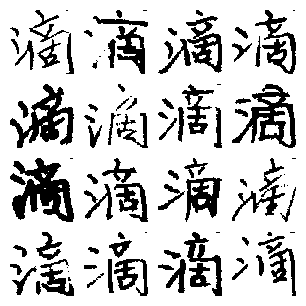 滴滴滴滴
滴滴滴滴
滴滴滴滴
滴滴滴滴